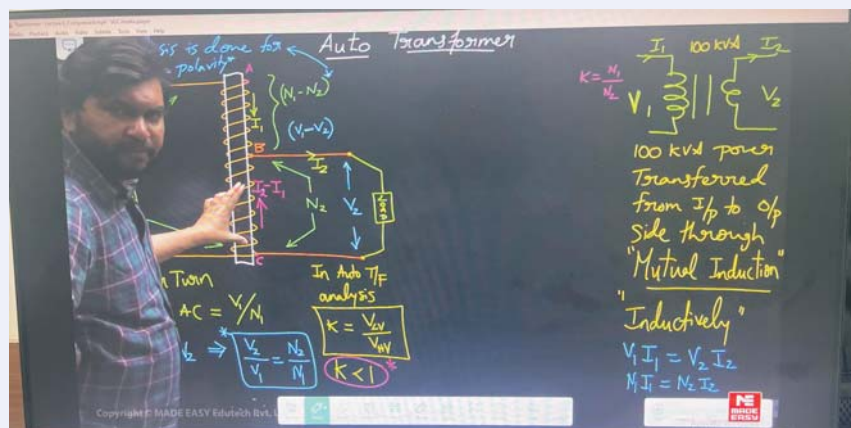 Auto Transformer
sis is done for
polarity*
A
I1
(N1-N2)
(V1-V2)
B
I2
I2-I1
N2
V2
Load
C
Turn
AC = V1/N1
V2 ⇒ V2/V1 = N2/N1 *
In Auto T/F
analysis
K = VLV/VHV
K < 1 *
I1 100 KVA I2
K = N1/N2
V1 V2
100 KVA power
Transferred
from I/p to O/p
side through
"Mutual Induction"
"Inductively"
V1I1 = V2I2
N1I1 = N2I2
Copyright © MADE EASY Edutech Pvt.
ME
MADE
EASY